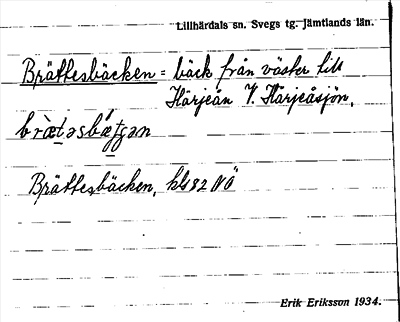 Lillhärdals sn. Svegs tg. Jämtlands län.
Brättesbäcken = bäck från väster till
Härjeån V. Härjeåsjön,
Brättesbäcken, kbl 32 NÖ
Erik Eriksson 1934.